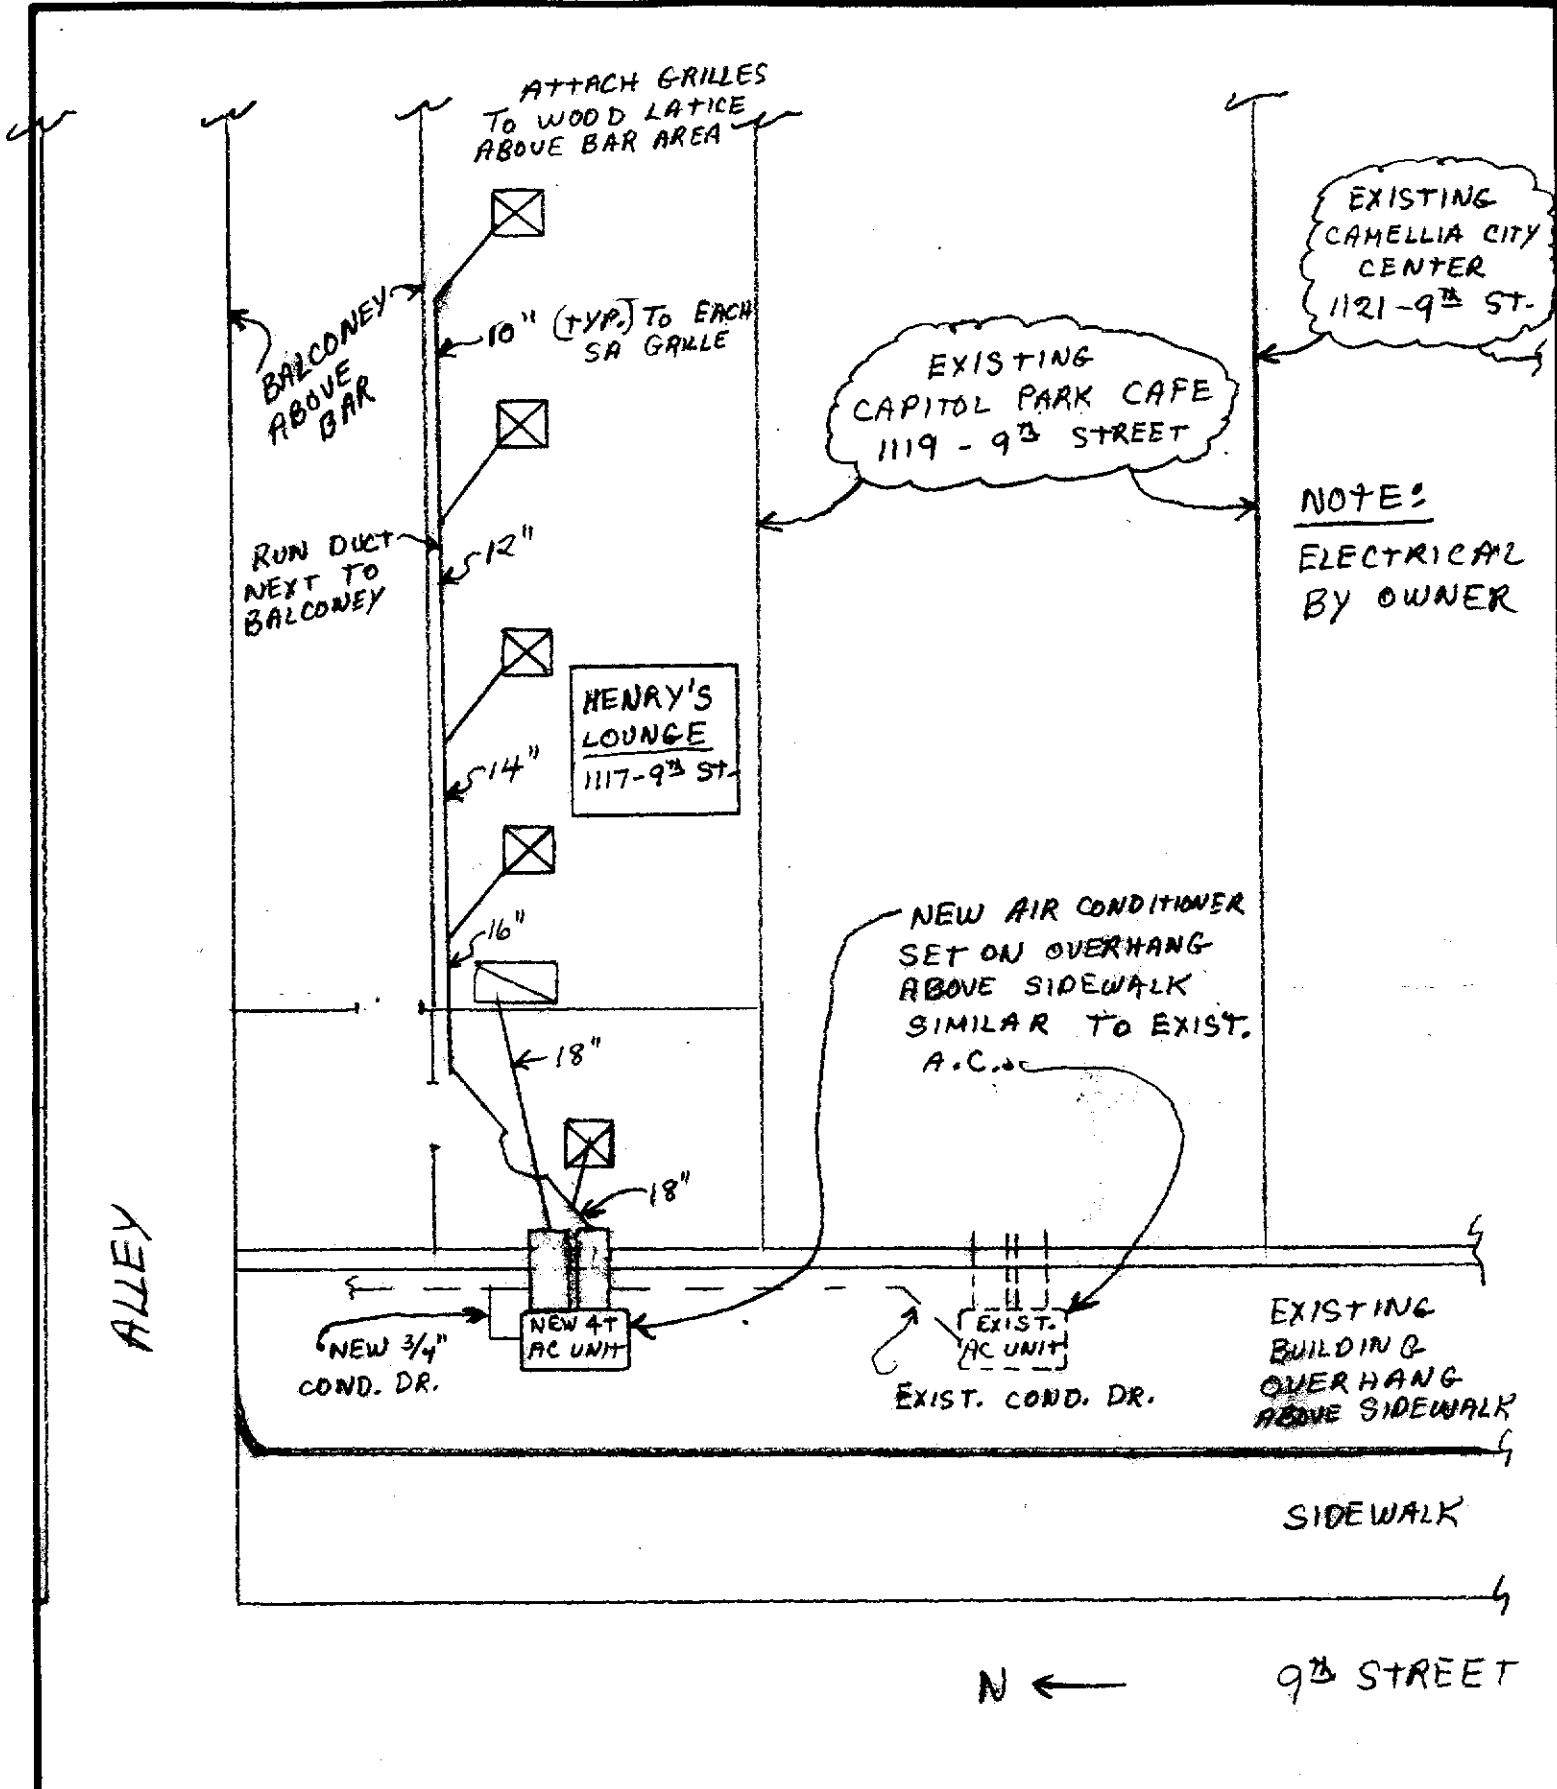 ATTACH GRILLES
TO WOOD LATICE
ABOVE BAR AREA
EXISTING
CAMELLIA CITY
CENTER
1121-9TH ST.
BALCONEY
ABOVE
BAR
10" (TYP.) TO EACH
SA GRILLE
EXISTING
CAPITOL PARK CAFE
1119 - 9TH STREET
NOTE:
ELECTRICAL
BY OWNER
RUN DUCT
NEXT TO
BALCONEY
12"
HENRY'S
LOUNGE
1117-9TH ST.
14"
16"
NEW AIR CONDITIONER
SET ON OVERHANG
ABOVE SIDEWALK
SIMILAR TO EXIST.
A.C.
18"
18"
ALLEY
NEW 3/4"
COND. DR.
NEW 4T
AC UNIT
EXIST.
AC UNIT
EXIST. COND. DR.
EXISTING
BUILDING
OVERHANG
ABOVE SIDEWALK
SIDEWALK
N
9TH STREET